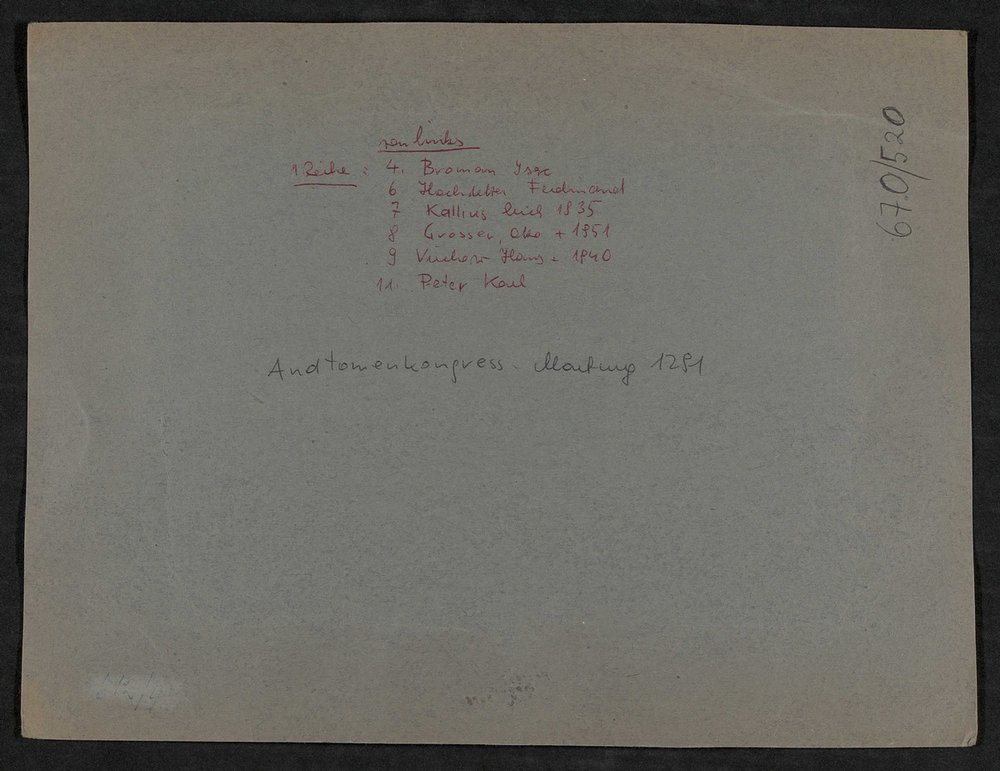 von links
1 Reihe : 4. Broman Ivar
6 Hochstetter Ferdinand
7 Kallius Erich 1935
8 Grosser, Otto + 1951
9 Virchow Hans + 1940
11. Peter Karl
Anatomenkongress - Marburg 1921
67.0/520